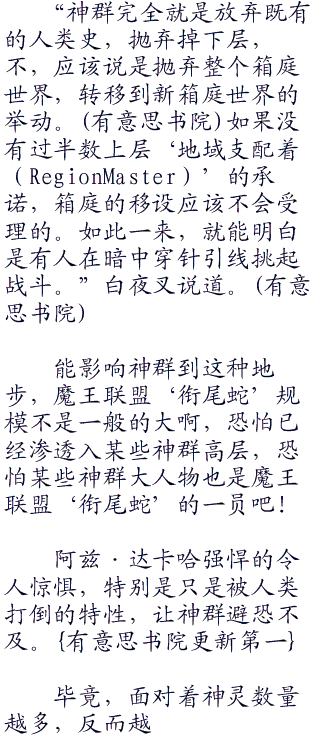 “神群完全就是放弃既有
的人类史，抛弃掉下层，
不，应该说是抛弃整个箱庭
世界，转移到新箱庭世界的
举动。(有意思书院)如果没
有过半数上层‘地域支配着
（RegionMaster）’的承
诺，箱庭的移设应该不会受
理的。如此一来，就能明白
是有人在暗中穿针引线挑起
战斗。”白夜叉说道。(有意
思书院)
能影响神群到这种地
步，魔王联盟‘衔尾蛇’规
模不是一般的大啊，恐怕已
经渗透入某些神群高层，恐
怕某些神群大人物也是魔王
联盟‘衔尾蛇’的一员吧！
阿兹·达卡哈强悍的令
人惊惧，特别是只是被人类
打倒的特性，让神群避恐不
及。{有意思书院更新第一}
毕竟，面对着神灵数量
越多，反而越